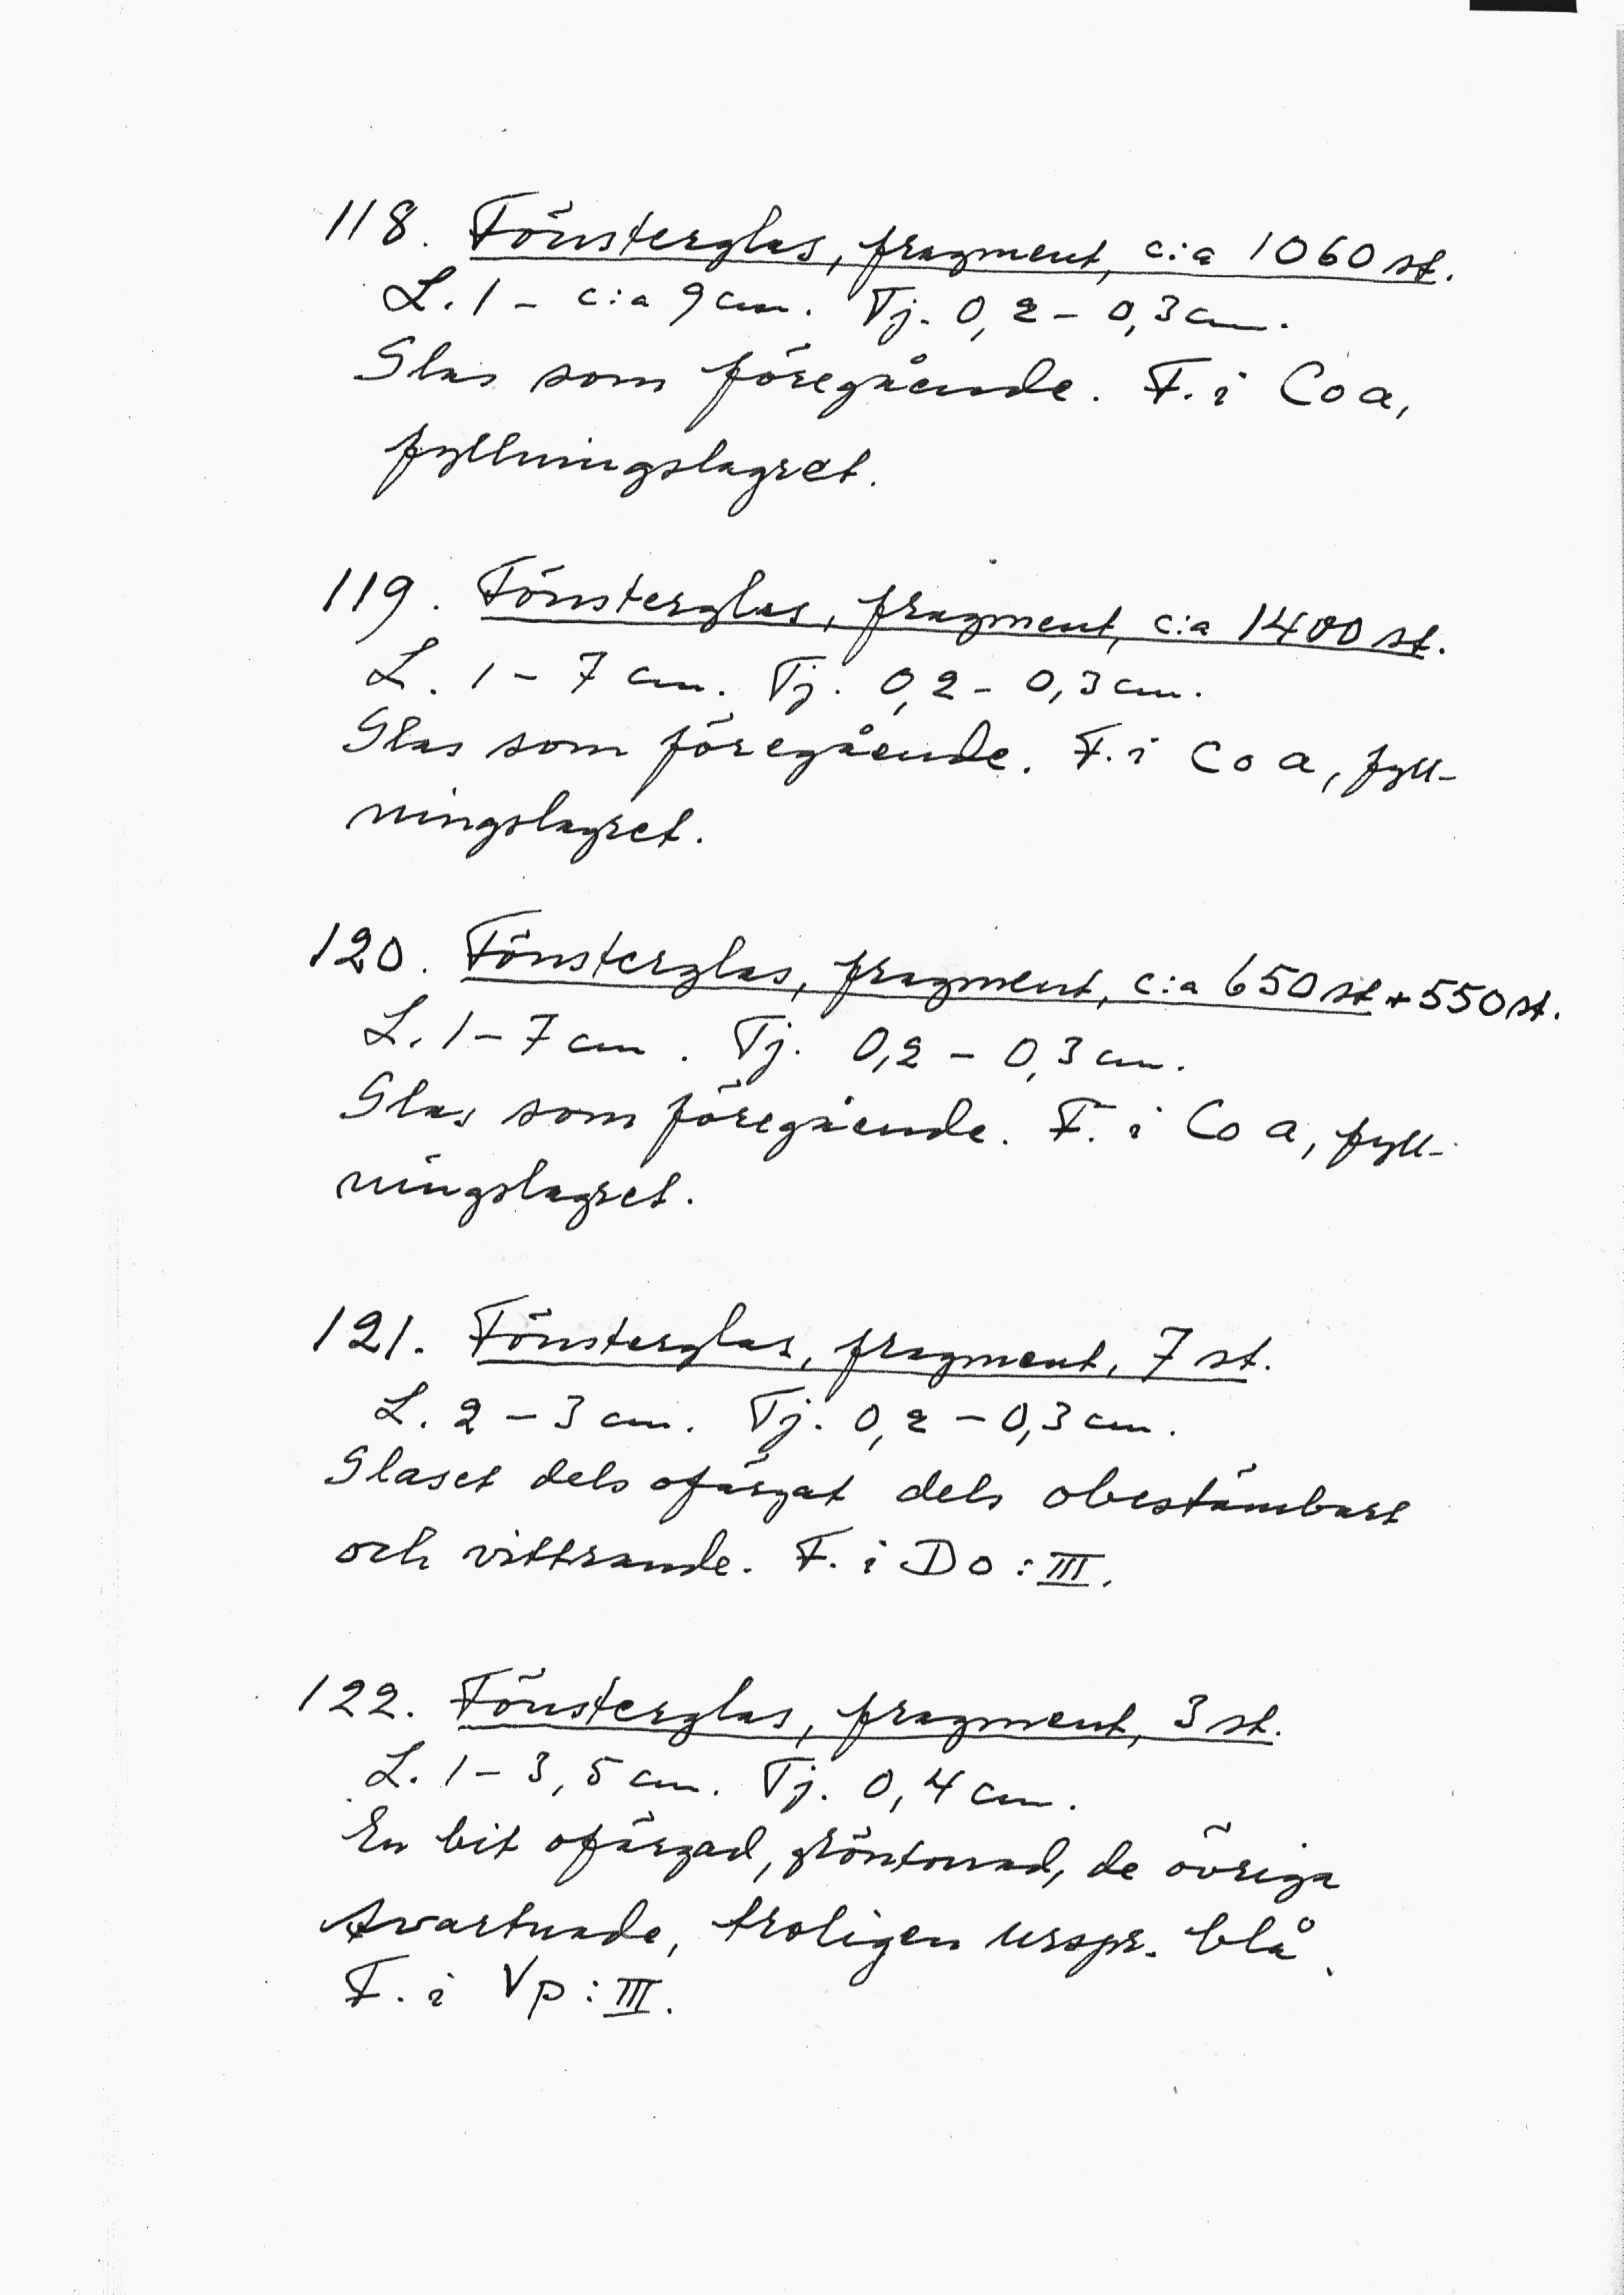 118. Fönsterglas, fragment, c:a 1060 st.
L. 1 - c:a 9 cm. Tj. 0,2 - 0,3 cm.
Glas som föregående. F. i Coa,
fyllningslagret.
119. Fönsterglas, fragment, c:a 1400 st.
L. 1 - 7 cm. Tj. 0,2 - 0,3 cm.
Glas som föregående. F. i Coa, fyll-
ningslagret.
120. Fönsterglas, fragment, c:a 650 st + 550 st.
L. 1 - 7 cm. Tj. 0,2 - 0,3 cm.
Glas som föregående. F. i Coa, fyll-
ningslagret.
121. Fönsterglas, fragment, 7 st.
L. 2 - 3 cm. Tj. 0,2 - 0,3 cm.
Glaset dels ofärgat dels obestämbart
och vittrande. F. i Do : III.
122. Fönsterglas, fragment, 3 st.
L. 1 - 3,5 cm. Tj. 0,4 cm.
En bit ofärgad, gröntonad, de övriga
svartnade, troligen urspr. blå.
F. i Vp : III.